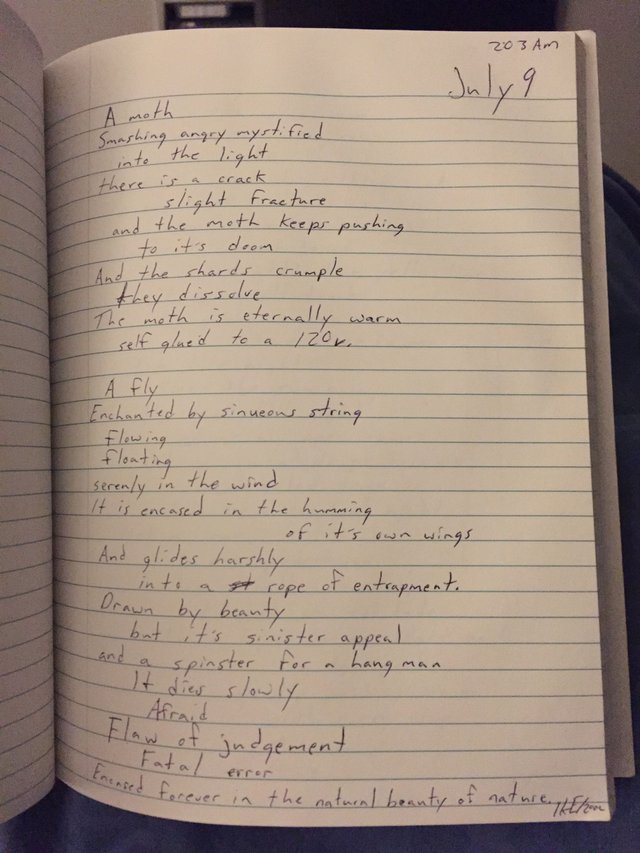 203 Am
July 9
A moth
Smashing angry mystified
into the light
there is a crack
slight fracture
and the moth keeps pushing
to it's doom
And the shards crumple
they dissolve
The moth is eternally warm
self glued to a 120v.
A fly
Enchanted by sinueous string
flowing
floating
serenly in the wind
It is encased in the humming
of it's own wings
And glides harshly
into a rope of entrapment.
Drawn by beauty
but it's sinister appeal
and a spinster for a hang man
It dies slowly
Afraid
Flaw of judgement
Fatal error
Encased forever in the natural beauty of nature.